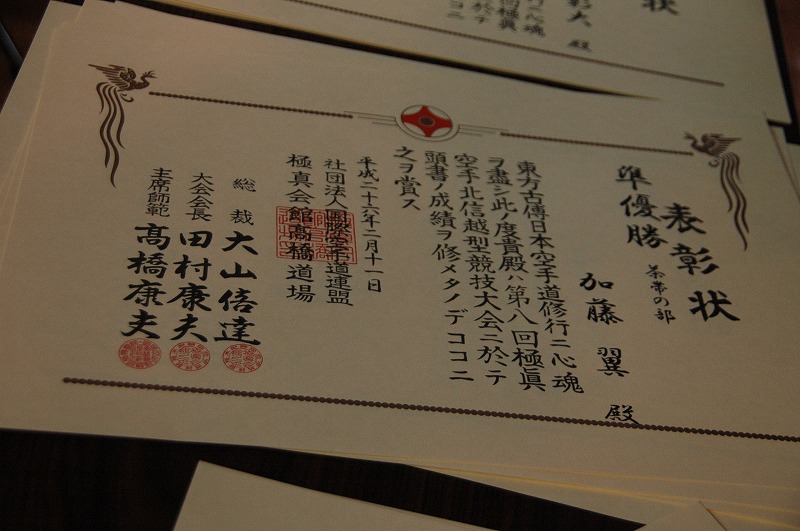 表彰状
準優勝
茶帯の部
加藤 翼 殿
東方古傳日本空手道修行ニ心魂
ヲ盡シ此ノ度貴殿ハ第八回極眞
空手北信越型競技大会ニ於テ
頭書ノ成績ヲ修メタノデココニ
之ヲ賞ス
平成二十六年二月十一日
社団法人國際空手道連盟
極真会館髙橋道場
総裁 大山倍達
大会会長 田村康夫
主席師範 髙橋康夫
状
彰大 殿
ニ心魂
極眞
於テ
ココニ